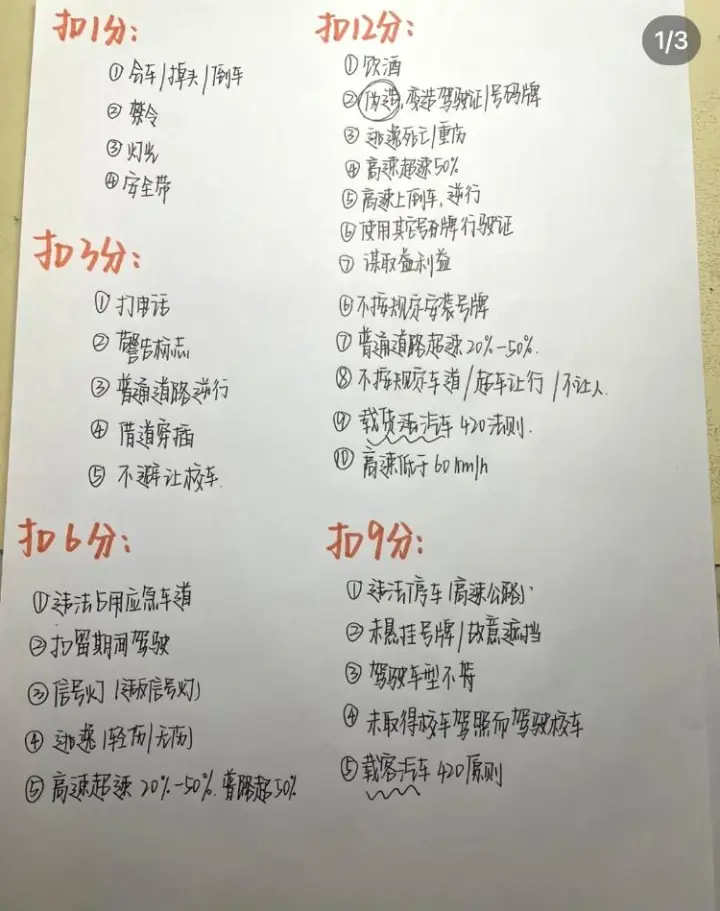 扣1分:
①会车/掉头/倒车
②禁令
③灯光
④安全带
扣3分:
①打电话
②警告标志
③普通道路逆行
④借道穿插
⑤不避让校车
扣6分:
①违法占用应急车道
②扣留期间驾驶
③信号灯(违反信号灯)
④逃逸(轻伤/无伤)
⑤高速超速20%-50%.普路超50%
扣12分:
①饮酒
②伪造、变造驾驶证/号码牌
③逃逸死亡/重伤
④高速超速50%
⑤高速上倒车、逆行
⑥使用其它号码牌行驶证
⑦谋取益利益
⑥不按规定安装号牌
⑦普通道路超速20%-50%.
⑧不按规定车道/超车让行/不让人.
⑨载货汽车420法则.
⑩高速低于60km/h
扣9分:
①违法停车(高速公路)
②未悬挂号牌/故意遮挡
③驾驶车型不符
④未取得校车驾照而驾驶校车
⑤载客汽车420原则
1/3